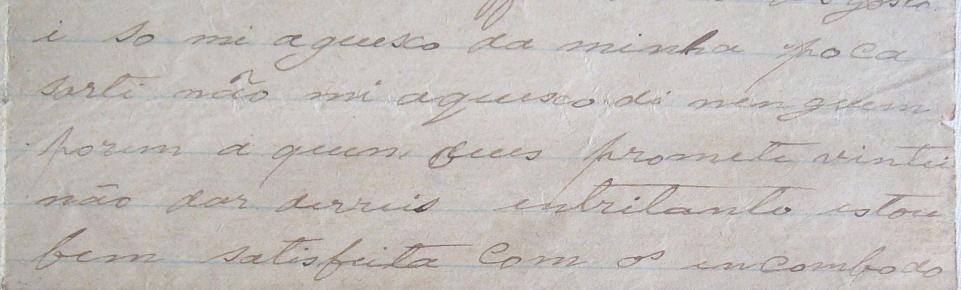 i so mi aquexo da minha poca
sorti não mi aquexo di nenguem
porem a quem Deus promete vintei
não dar derreis entritanto estou
bem satisfeita Com os encombodo